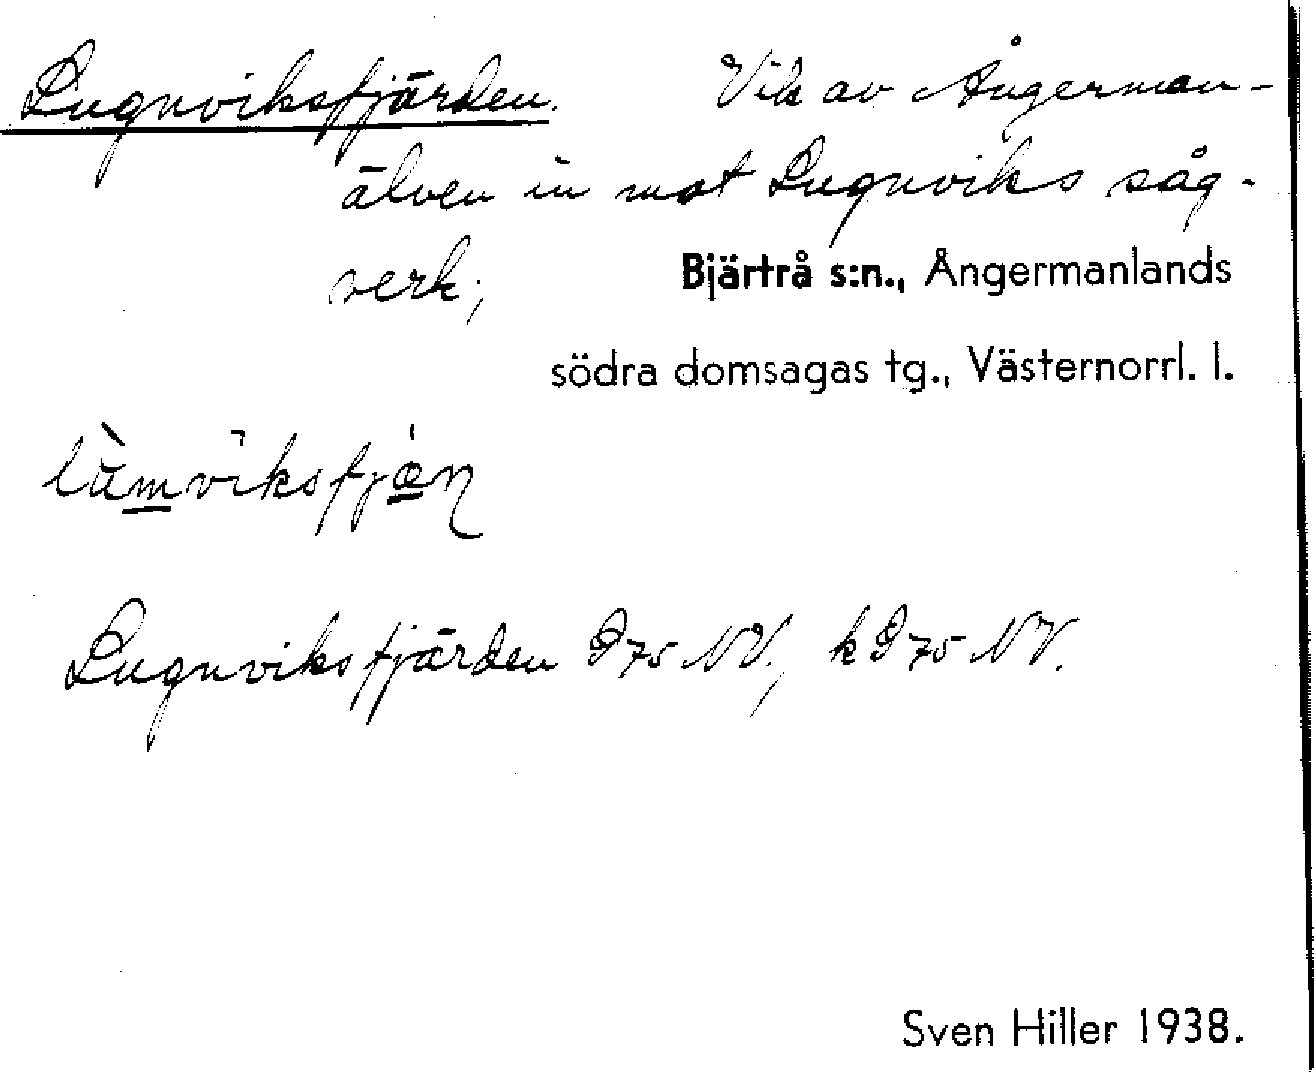 Lugnviksfjärden. Vik av Ångerman-
älven in mot Lugnviks såg-
verk;
Bjärtrå s:n., Ångermanlands
södra domsagas tg., Västernorrl. l.
Lugnviksfjärden I 75 NV, k I 75 NV.
Sven Hiller 1938.